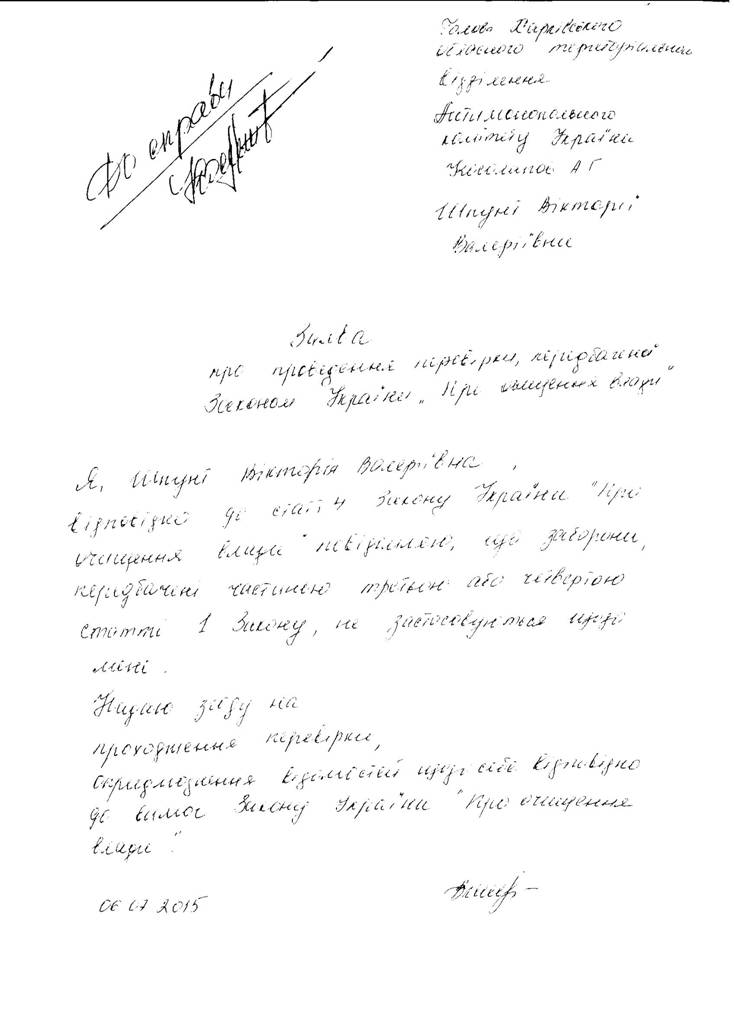 До справи
Голова Харківського
обласного територіального
відділення
Антимонопольного
комітету України
А Г
Шпуні Вікторії
Валеріївни
Заява
про проведення перевірки, передбаченої
Законом України „Про очищення влади"
Я, Шпуні Вікторія Валеріївна,
відповідно до статті 4 Закону України "Про
очищення влади" повідомляю, що заборони,
передбачені частиною третьою або четвертою
статті 1 Закону, не застосовуються щодо
мені.
Надаю згоду на
проходження перевірки,
оприлюднення відомостей щодо себе відповідно
до вимог Закону України "Про очищення
влади".
06 07 2015